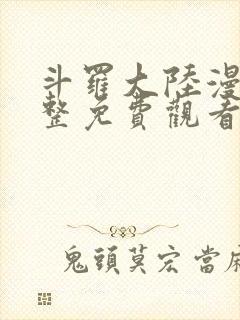 斗羅大陸漫
整免費觀看
鬼頭莫宏當麻